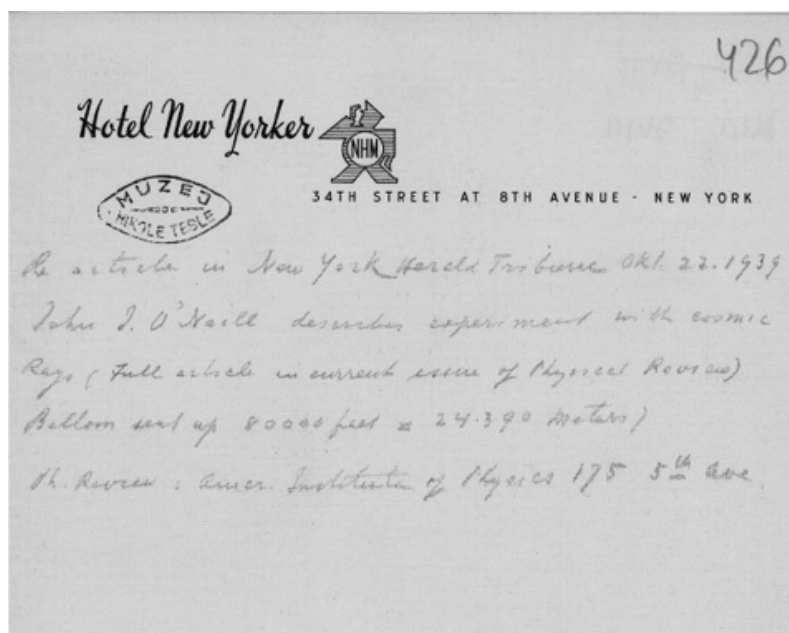 426
Hotel New Yorker
NHM
34TH STREET AT 8TH AVENUE · NEW YORK
MUZEJ
NIKOLE TESLE
Re article in New York Herald Tribune Okt. 22. 1939
John J. O'Neill describes experiment with cosmic
Rays (Full article in current issue of Physical Review)
Balloon sent up 80000 feet = 24.390 meters)
Ph. Review : Amer. Institution of Physics 175 5th Ave.